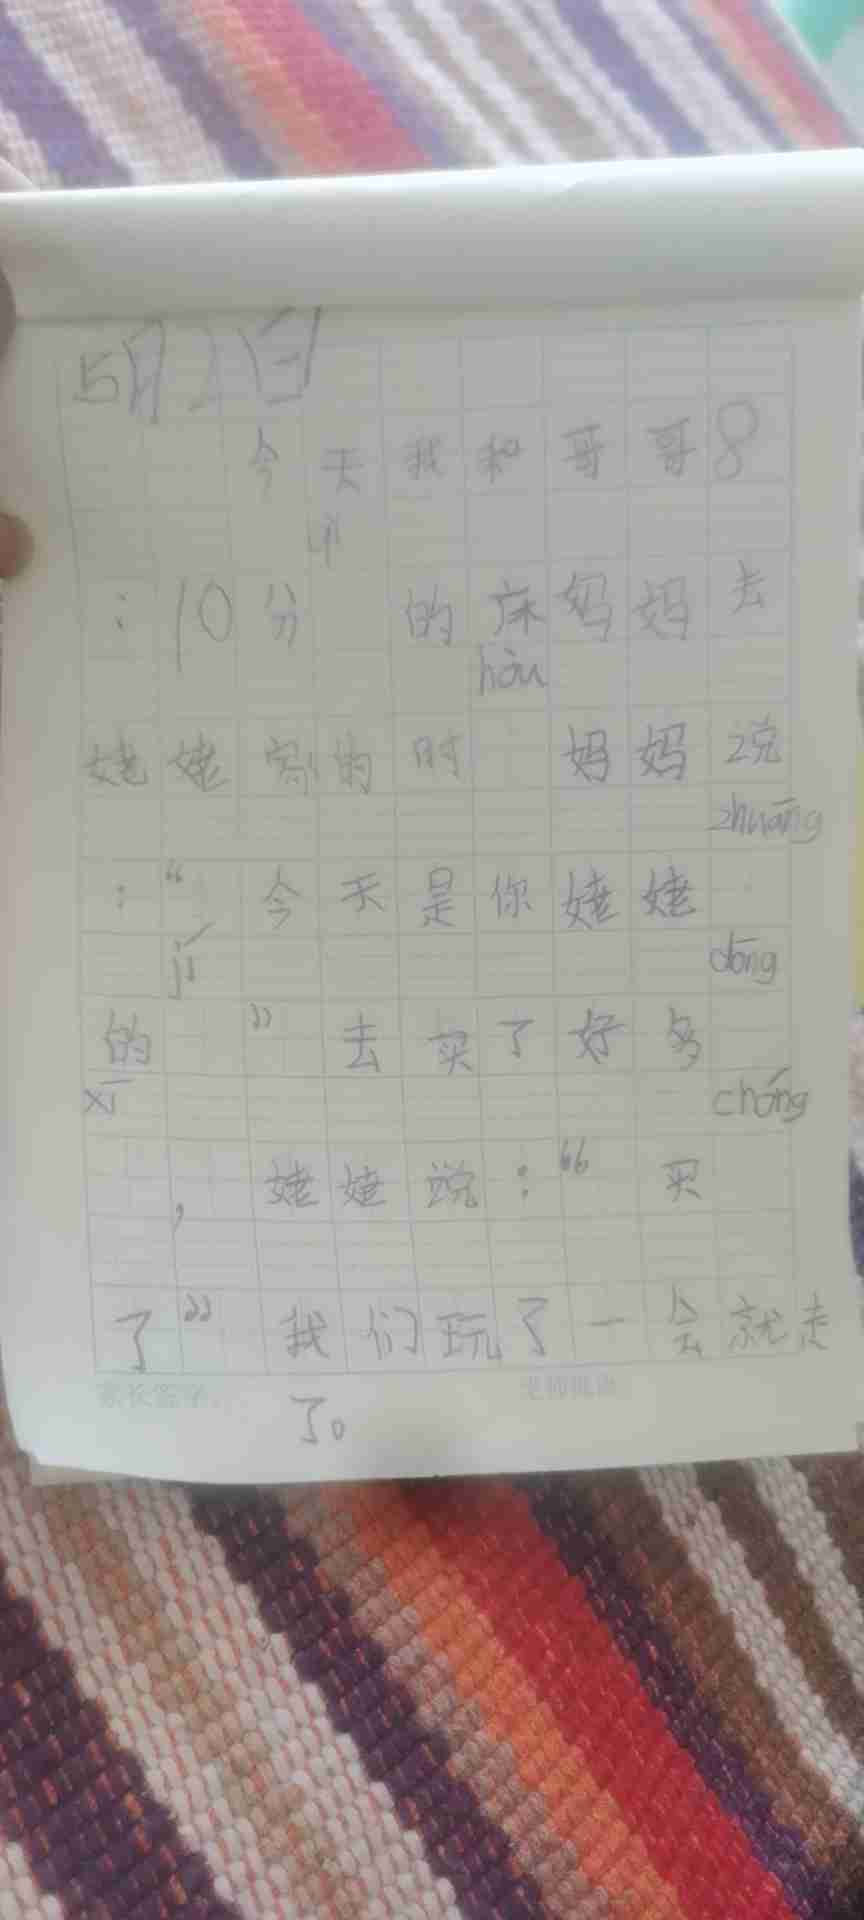 5月2日
今天我和哥哥8
:10分 的床妈妈去
hòu
姥姥家的时 妈妈说
zhuāng
:“今天是你姥姥
jí dōng
的 ”去买了好多
xī chóng
,姥姥说:“买
了”我们玩了一会就走
家长签字:
了。